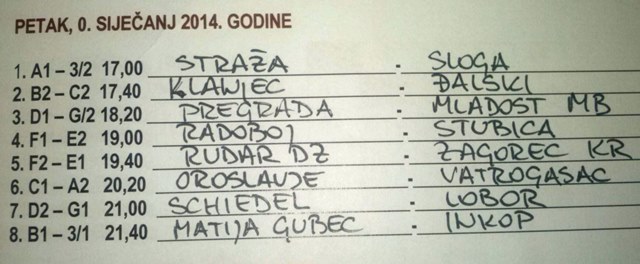 PETAK, 0. SIJEČANJ 2014. GODINE
1. A1 – 3/2 17,00 STRAŽA - SLOGA
2. B2 – C2 17,40 KLANJEC - ĐALSKI
3. D1 – G/2 18,20 PREGRADA - MLADOST MB
4. F1 – E2 19,00 RADOBOJ - STUBICA
5. F2 – E1 19,40 RUDAR DZ - ZAGOREC KR
6. C1 – A2 20,20 OROSLAVJE - VATROGASAC
7. D2 – G1 21,00 SCHIEDEL - LOBOR
8. B1 – 3/1 21,40 MATIJA GUBEC - INKOP